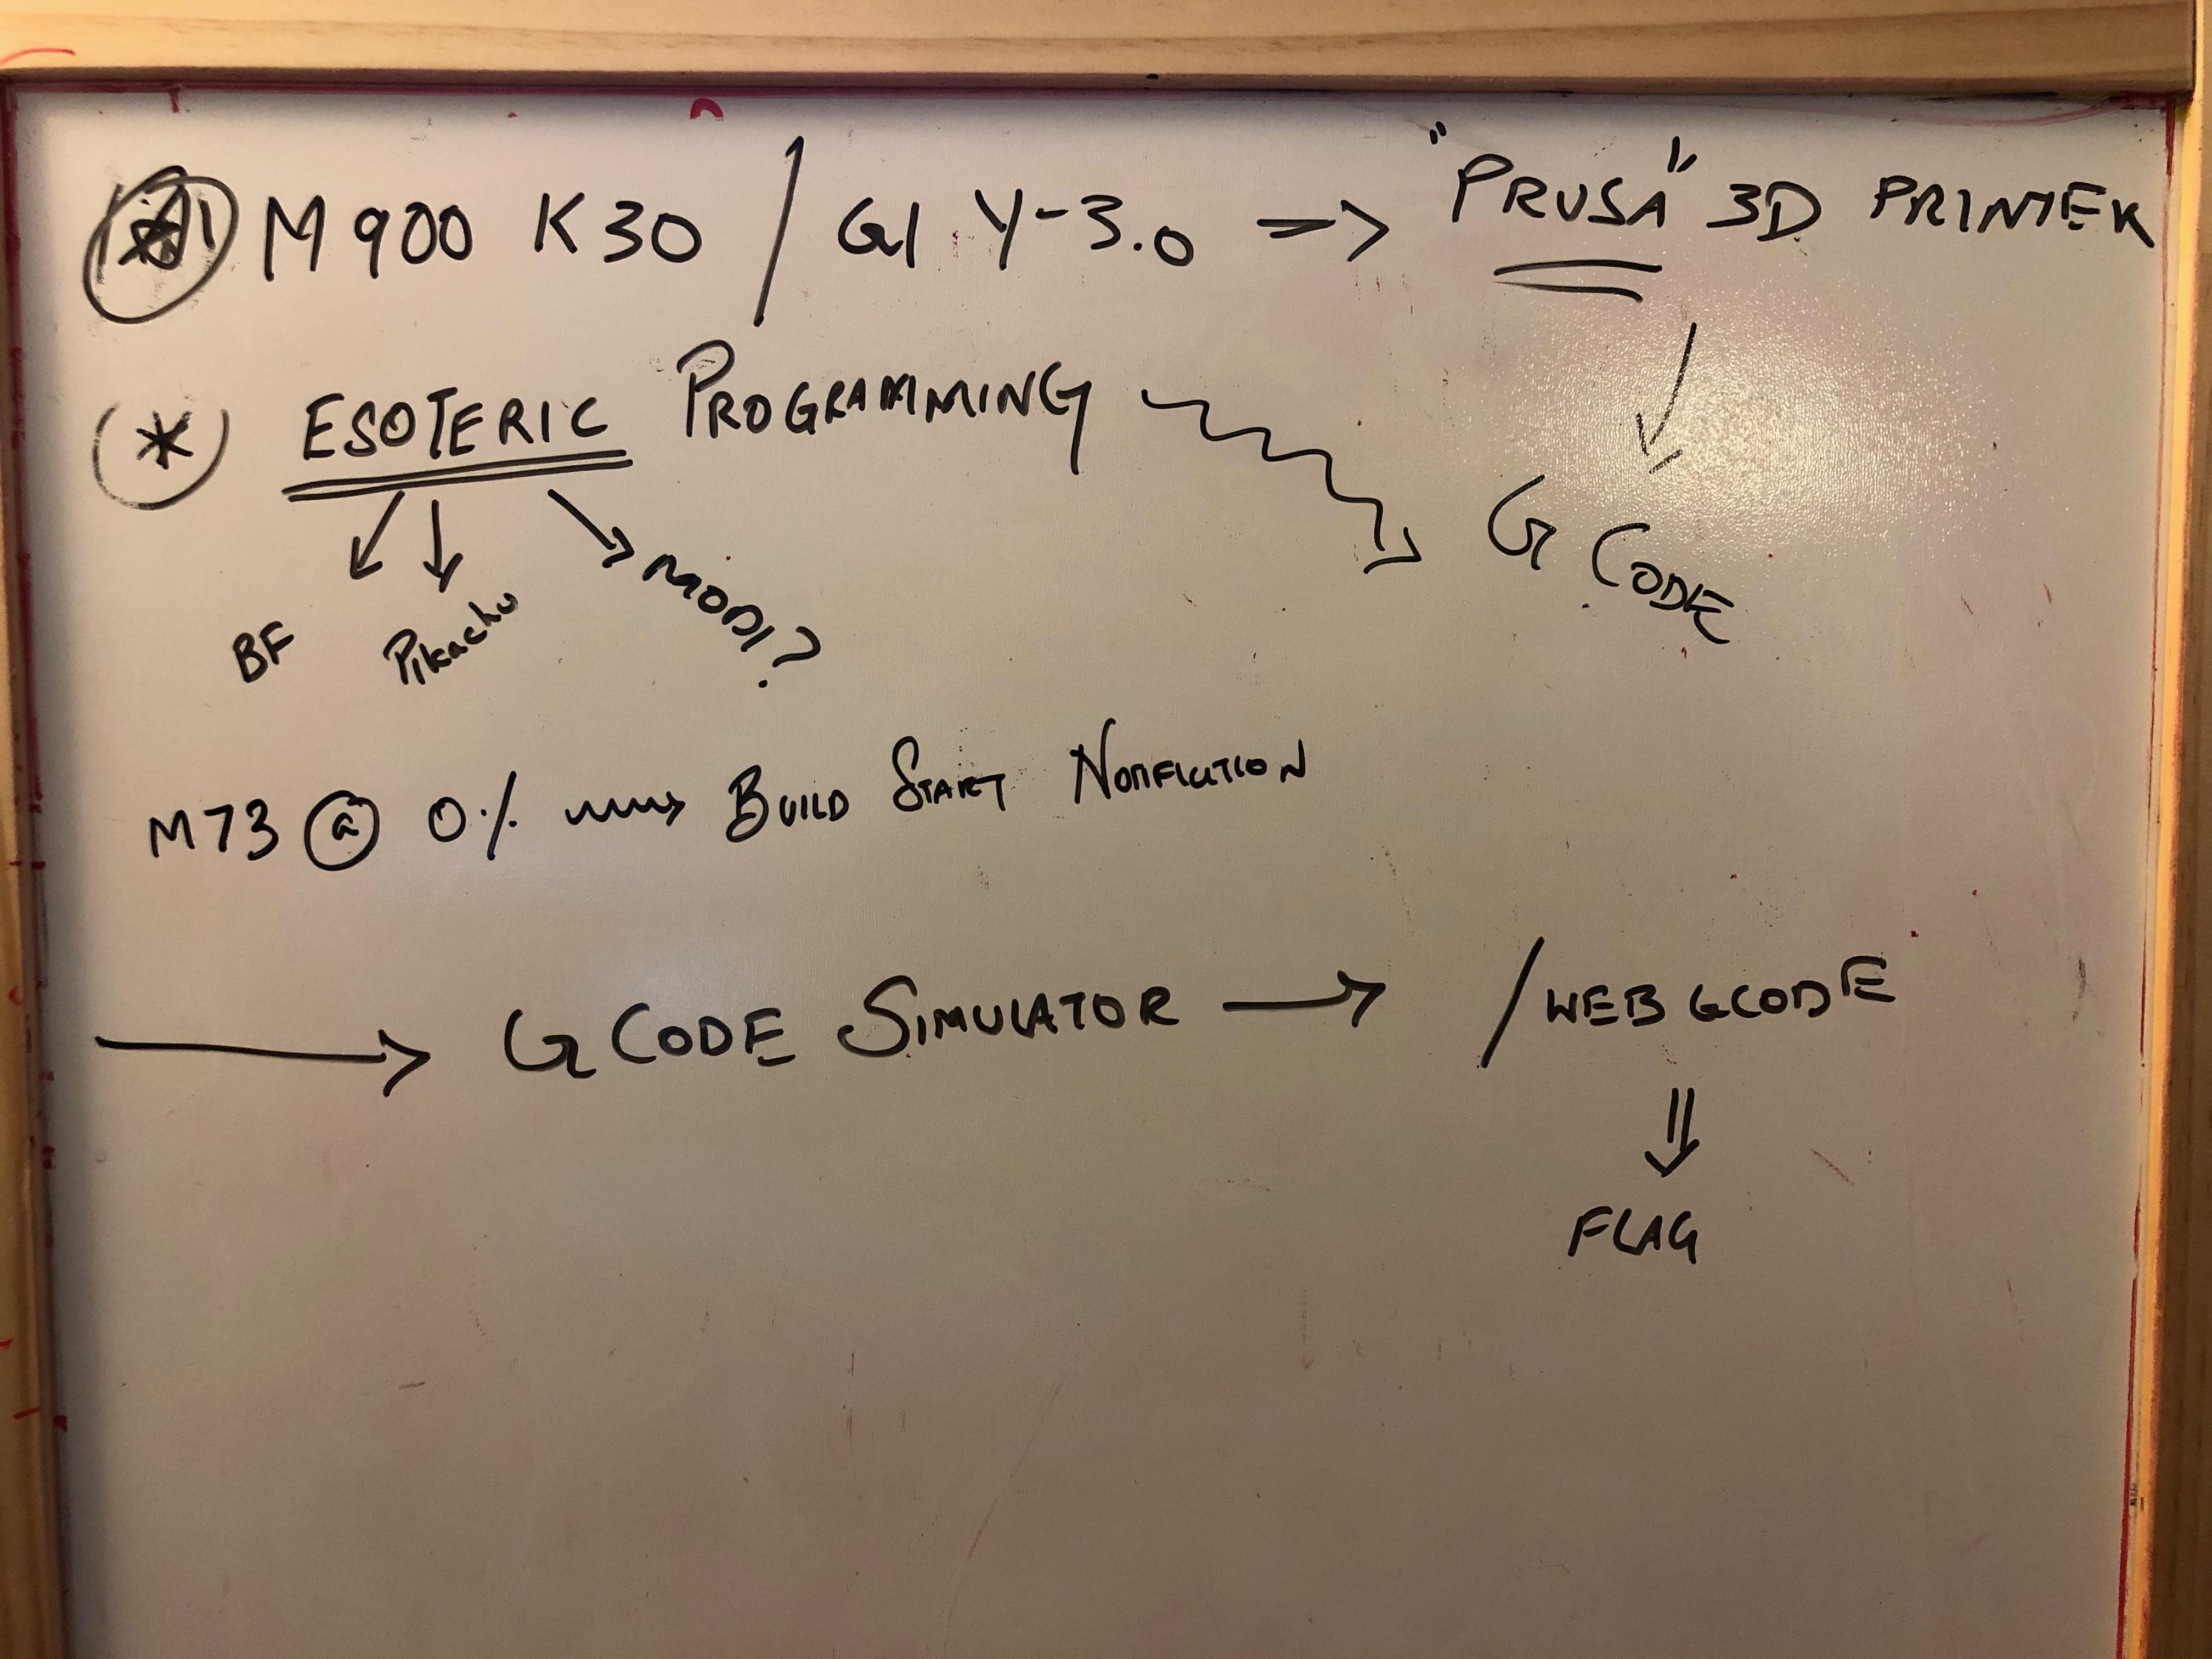 M900 K30 / G1 Y-3.0 => "PRUSA" 3D PRINTER
(*) ESOTERIC PROGRAMMING
G CODE
BF Pikachu MODI?
M73 @ 0% → BUILD START NOTIFICATION
→ G CODE SIMULATOR → /WEBGCODE
FLAG